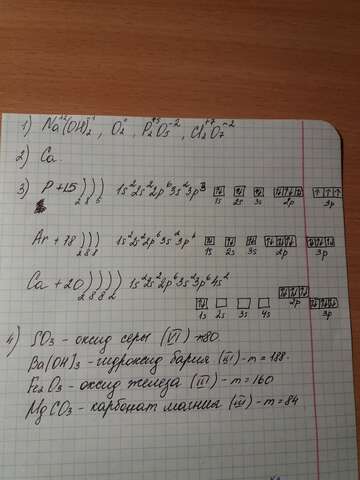 1) Na⁺²(OH)₂⁻¹, O₂⁰, P₂⁺⁵O₅⁻², Cl₂⁺⁷O₇⁻²
2) Ca
3) P +15 ) ) ) 1s²2s²2p⁶3s²3p³
2 8 5 1s 2s 3s 2p 3p
Ar +18 ) ) ) 1s²2s²2p⁶3s²3p⁶
2 8 8 1s 2s 3s 2p 3p
Ca +20 ) ) ) ) 1s²2s²2p⁶3s²3p⁶4s²
2 8 8 2 1s 2s 3s 4s 2p 3p
4) SO₃ - оксид серы (VI) 80.
Ba(OH)₃ - гидроксид бария (III) - m = 188.
Fe₂O₃ - оксид железа (III) - m = 160
MgCO₃ - карбонат магния (III) - m = 84